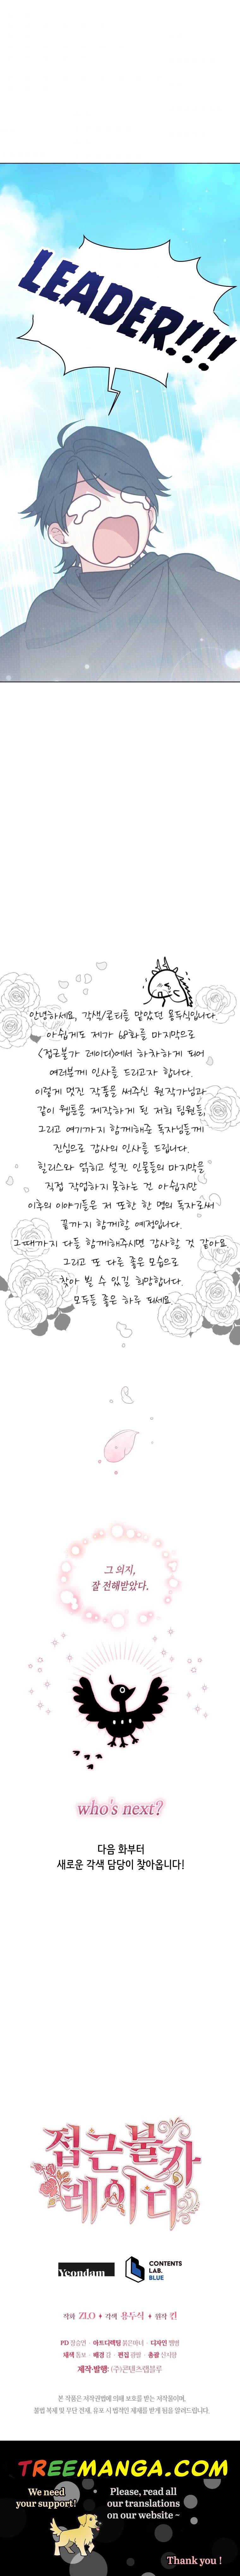 LEADER!!!
안녕하세요, 각색/콘티를 맡았던 용두식입니다.
아쉽게도 제가 68화를 마지막으로
<접근불가 레이디>에서 하차하게 되어
여러분께 인사를 드리고자 합니다.
이렇게 멋진 작품을 써주신 원작가님과
같이 웹툰을 제작하게 된 저희 팀원들,
그리고 여기까지 함께해준 독자님들께
진심으로 감사의 인사를 드립니다.
힐리스와 얽히고 섥킨 인물들의 마지막을
직접 작업하지 못하는 건 아쉽지만
이후의 이야기들은 저 또한 한 명의 독자로써
끝까지 함께할 예정입니다.
그때까지 다들 함께해주시면 감사할 것 같아요.
그리고 또 다른 좋은 모습으로
찾아 뵐 수 있길 희망합니다.
모두들 좋은 하루 되세요.
그 의지,
잘 전해받았다.
who's next?
다음 화부터
새로운 각색 담당이 찾아옵니다!
접근불가
레이디
Yeondam
CONTENTS
LAB.
BLUE
작화 ZLO ♦ 각색 용두식 ♦ 원작 킨
PD 장승연 · 아트디렉팅 붉은바네 · 디자인 햄햄
채색 동포 · 배경 김 · 편집 광팔 · 총괄 신지함
제작·발행: (주)콘텐츠랩블루
본 작품은 저작권법에 의해 보호를 받는 저작물이며,
불법 복제 및 무단 전재, 유포 시 법적인 제재를 받게 됨을 알려드립니다.
TREEMANGA.COM
We need
your support!
Please, read all
our translations
on our website ~
Thank you !